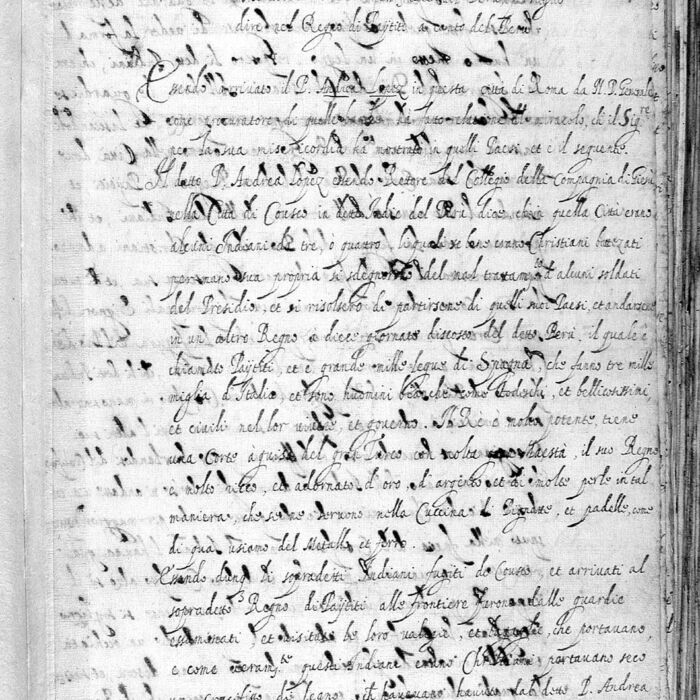 dire nel Regno di Paytiti a canto del Perù.
Essendo arrivato il P. Andrea Lopez in questa città di Roma da N. P. Generale
come procuratore di quelle ha fatto relatione del miracolo, ch'il Sig.re
per la sua misericordia ha mostrato in quelli Paesi, et è il seguente.
Il detto P. Andrea Lopez essendo Retore del Collegio della Compagnia di Giesù
nella Città di Cousco in dette Indie del Perù dice, ch'in quella Città erano
alcuni Indiani da tre, ò quattro, li quali se bene erano Christiani batezati
per mano sua propria si sdegnorno del mal trattam.to d'alcuni soldati
del Presidio, et si risolsero di partirsene di quelli suoi Paesi, et andarsene
in un' altro Regno à diece giornate discosto del detto Perù, il quale è
chiamato Paytiti, et è grande mille legue di Spagna, che fanno tre mille
miglia d'Italia, et sono huomini bianchi come Todeschi, et bellicosissimi,
et civili nel lor vivere, et governo. Il Re è molto potente, tiene
una Corte a guisa del gran Turco con molta Maestà, il suo Regno
è molto ricco, et adornato d'oro, d'argento et di molte perle in tal
maniera, che se ne servono nella Cuccina di Pignatte, et padelle, come
di qua usiamo del Metallo et ferro.
Essendo dunq. di sopradetti Indiani fugiti do Cousco, et arrivati al
sopradetto Regno di Paytiti alle frontiere furono dalle guardie
essaminati, et visitate le loro valigie, et che portavano,
e come questi Indiani erano Christiani portavano seco
Crocifisso di legno, P. Andrea